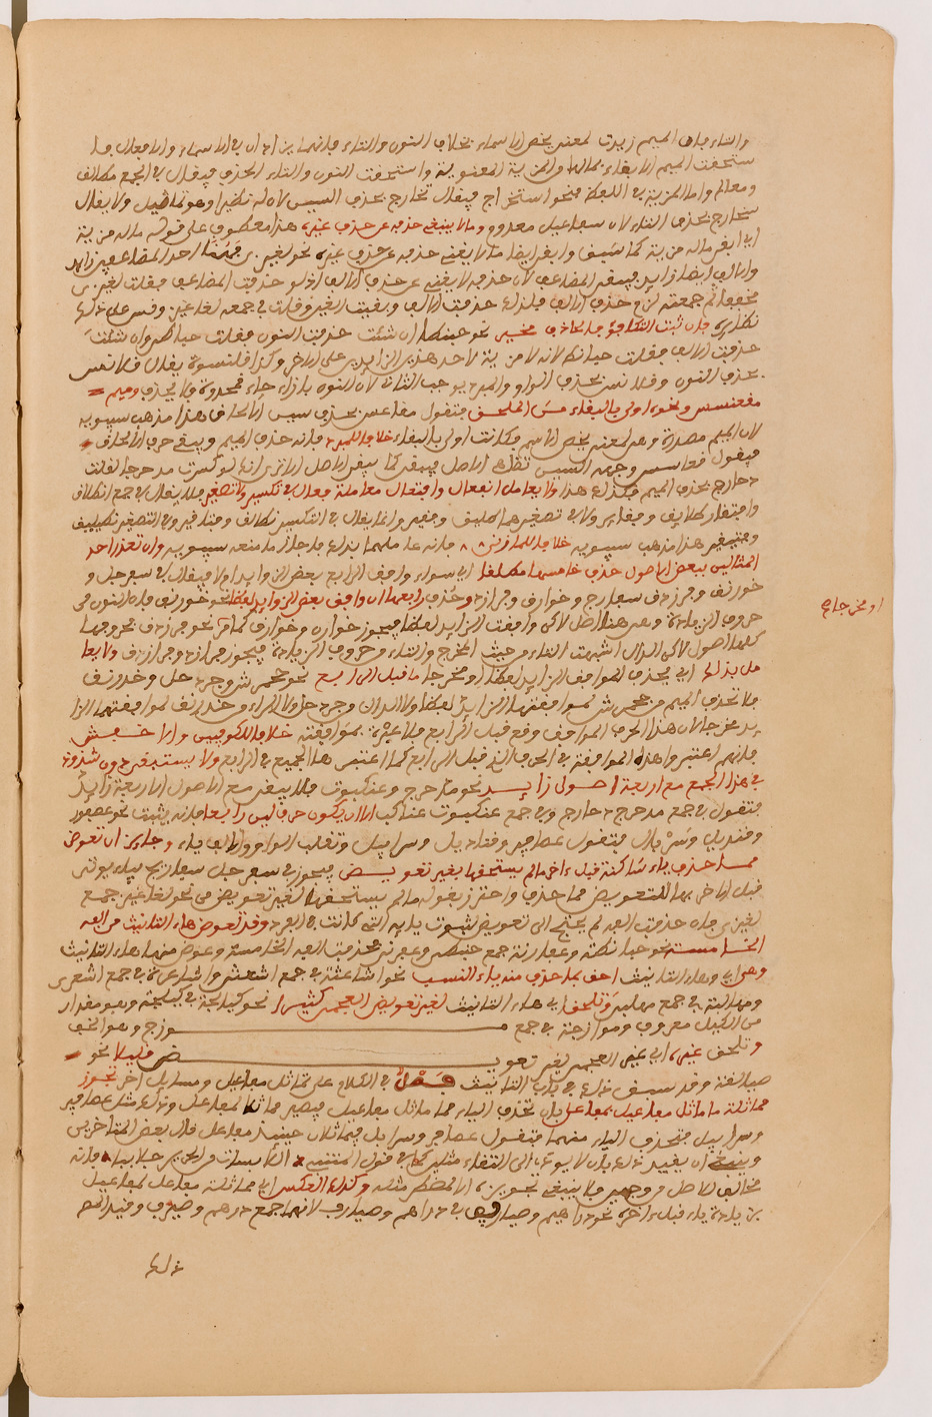 والتاء فإن الميم زيدت لمعنى يخص الأسماء بخلاف النون والتاء فإنهما يزادان في الأسماء والأفعال فا
ستحقت الميم الإبقاء بمالها من المزية المعنوية واستحقت النون والتاء الحذف فيقال في الجمع مطالق
ومغالم وأما المزية في اللفظ فنحو استخراج فيقال تخارج بحذف السين لأن له نظيرا وهو تماثيل ولا يقال
سخارج بحذف التاء لأن سفاعيل معدوم وما لا يغني حذفه عن حذف غيره هذا معطوف على قوله ماله مزية
أي أبق ماله مزية كما سبق وابق أيضا ما لا يغني حذفه عن حذف غيره نحو لغيزى فيه أحد المضاعفين زائد
والألف أيضا زايد فيبقى المضاعف لأن حذفه لا يغني عن حذف الألف إذ لو حذفت المضاعف فقلت لغيزى
مخففا ثم جمعته لزم حذف الألف فلذلك حذفت الألف وبقيت الغير وقلت في جمعه لغاغيز وقس على ذلك
نظايره فإن ثبت التكافؤ فالحاذف مخير نحو حبنطا إن شئت حذفت النون فقلت حباطى وإن شئت
حذفت الألف فقلت حبانط لأنه لا مزية لأحد هذين الزايدين على الآخر وكذا قلنسوة يقال قلانس
بحذف النون وقلانس بحذف الواو والمبرد يوجب الثاني لأن النون بإزاء حاء قمحدوة فلا يحذف وميم
مقعنسس ونحوه أولى بالبقاء من الملحق فتقول مقاعس بحذف سين الإلحاق هذا مذهب سيبويه
لأن الميم مصدرة وهي لمعنى يخص الاسم فكانت أولى بالبقاء خلافا للمبرد فإنه حذف الميم ويبقي حرف الإلحاق
فيقول قعاسس وجه السين تظاهي الأصل فيبقى كما يبقى الأصل ألا ترى أنك لو كسرت مدحرجا لقلت
دحارج بحذف الميم فكذلك هذا ولا يعامل انفعال وافتعال معاملة فعال في تكسير ولا تصغير فلا يقال في جمع انطلاق
وافتقار طلايق وفقاير ولا في تصغيرهما طليق وفقير وإنما يقال في التكسير نطاليق وفتاقير وفي التصغير نطيليق
وفتيقير هذا مذهب سيبويه خلافا للمازني فإنه عاملهما بذلك فأجاز ما منعه سيبويه وإن تعذر أحد
المثالين ببعض الأصول حذف خامسها مطلقا أي سواء وافق الرابع بعض الزوايد أم لا فيقال في سفرجل و
خورنق وفرزدق سفارج وخوارن وفرازد وحذف رابعها إن وافق بعض الزوايد لفظا نحو خورنق فإن النون من
حروف الزيادة وهي هنا أصل لكن وافقت الزايد لفظا فيجوز خوارن وخوارق كما مر نحو فرزدق فحروفها
كلها أصول لكن الدال أشبهت التاء من حيث المخرج والتاء من حروف الزيادة فيجوز فرازد وفرازق ولا يعا
مل بذلك أي بحذف الموافق الزايد لفظا أو مخرجا ما قبل الرابع نحو جحمرش وجردحل وخدرنق
فلا تحذف الميم من جحمرش لموافقتها الزايد لفظا ولا الدال من جردحل ولا الراء من خدرنق لموافقتها الزا
يد مخرجا لأن هذا الحرف الموافق وقع قبل الرابع فلا عبرة بموافقته خلافا للكوفيين والأخفش
فإنهم اعتبروا هذه الموافقة في الحرف الذي قبل الرابع كما اعتبرها الجميع في الرابع ولا يستبقى دون شذوذ
في هذا الجمع مع أربعة أصول زايد نحو مدحرج وعنكبوت فلا يبقى مع الأصول الأربعة زايد
فتقول في جمع مدحرج دحارج وفي جمع عنكبوت عناكب إلا أن يكون حرف لين رابعا فإنه يثبت نحو عصفور
وقنديل وسربال فتقول عصافير وقناديل وسرابيل وتقلب الواو والألف ياء وجايز أن تعوض
مما حذف ياء ساكنة قبل آخر ما لم يستحقها بغير تعويض فيجوز في سفرجل سفاريج بياء يوتى
قبل الآخر بها للتعويض مما حذف واحترز بقوله ما لم يستحقها لغير تعويض من نحو لغاغيز جمع
لغيزى فإن حذفت ألفه لم يحتج إلى تعويض لثبوت يايه التي كانت في المفرد وقد تعوض هاء التانيث من ألفه
الخامسة نحو حبانطة وعفارنة جمع حبنطى وعفرنى فحذفت ألفه الخامسة وعوض منها هاء التانيث
وهي أي وهاء التانيث أحق بما حذف منه ياء النسب نحو أشاعثة في جمع أشعثي وأشاعرة في جمع أشعري
ومهالبة في جمع مهلبي وتلحق أي هاء التانيث لغير تعويض العجمي كثيرا نحو كيالجة في كيلجة وهو مقدار
من الكيل معروف وموازجة في جمع موزج وهو الخف
وتلحق غيره أي غير العجمي لغير تعويض قليلا نحو
صياقلة وقد سبق ذلك في باب التانيث فصل في الكلام على تماثل مفاعيل ومسايل أخر تجوز
مماثلة ما ماثل مفاعيل بمفاعل بأن تحذف الياء مما ماثل مفاعيل فيصير مماثلا لمفاعل وذلك مثل عصافير
وسرابيل فتحذف الياء منهما فتقول عصافر وسرابل فيماثلان حينيذ مفاعل قال بعض المتاخرين
وينبغي أن يقيد ذلك بأن لا يودي إلى التقاء مثلين كما في قول المتنبي الكابسات من الحرير جلاببا فإنه
مخالف للأصل من وجهين فلا ينبغي تجويزه إلا لمضطر مثله وكذلك العكس أي مماثلة مفاعل لمفاعيل
بزيادة ياء قبل آخره نحو دراهيم وصياريف في دراهم وصيارف لأنهما جمع درهم وصيرف وقيد المص
ذلك
أو مخرجا صح